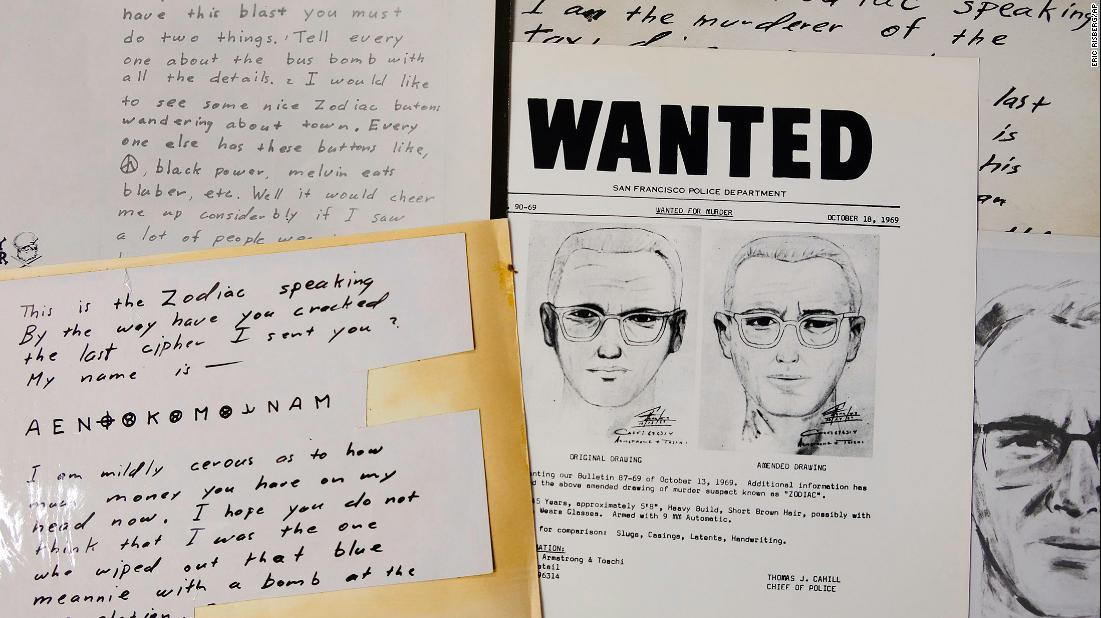 have this blast you must
do two things. Tell every
one about the bus bomb with
all the details. 2 I would like
to see some nice Zodiac butons
wandering about town. Every
one else has these buttons like,
☮, black power, melvin eats
bluber, etc. Well it would cheer
me up considerbly if I saw
a lot of people
This is the Zodiac speaking
By the way have you cracked
the last cipher I sent you?
My name is —
A E N ⌖ ⊗ K ⊗ M ⊗ ⅃ N A M
I am mildly cerous as to how
money you have on my
head now. I hope you do not
think that I was the one
who wiped out that blue
meannie with a bomb at the
I am the murderer of the
speaking
last
is
his
WANTED
SAN FRANCISCO POLICE DEPARTMENT
90-69 WANTED FOR MURDER OCTOBER 18, 1969
ORIGINAL DRAWING AMENDED DRAWING
nting our Bulletin 87-69 of October 13, 1969. Additional information has
d the above amended drawing of murder suspect known as "ZODIAC".
5 Years, approximately 5'8", Heavy Build, Short Brown Hair, possibly with
Wears Glasses. Armed with 9 MM Automatic.
for comparison: Slugs, Casings, Latents, Handwriting.
ATION:
Armstrong & Toschi
etail
96314
THOMAS J. CAHILL
CHIEF OF POLICE
ERIC RISBERG/AP